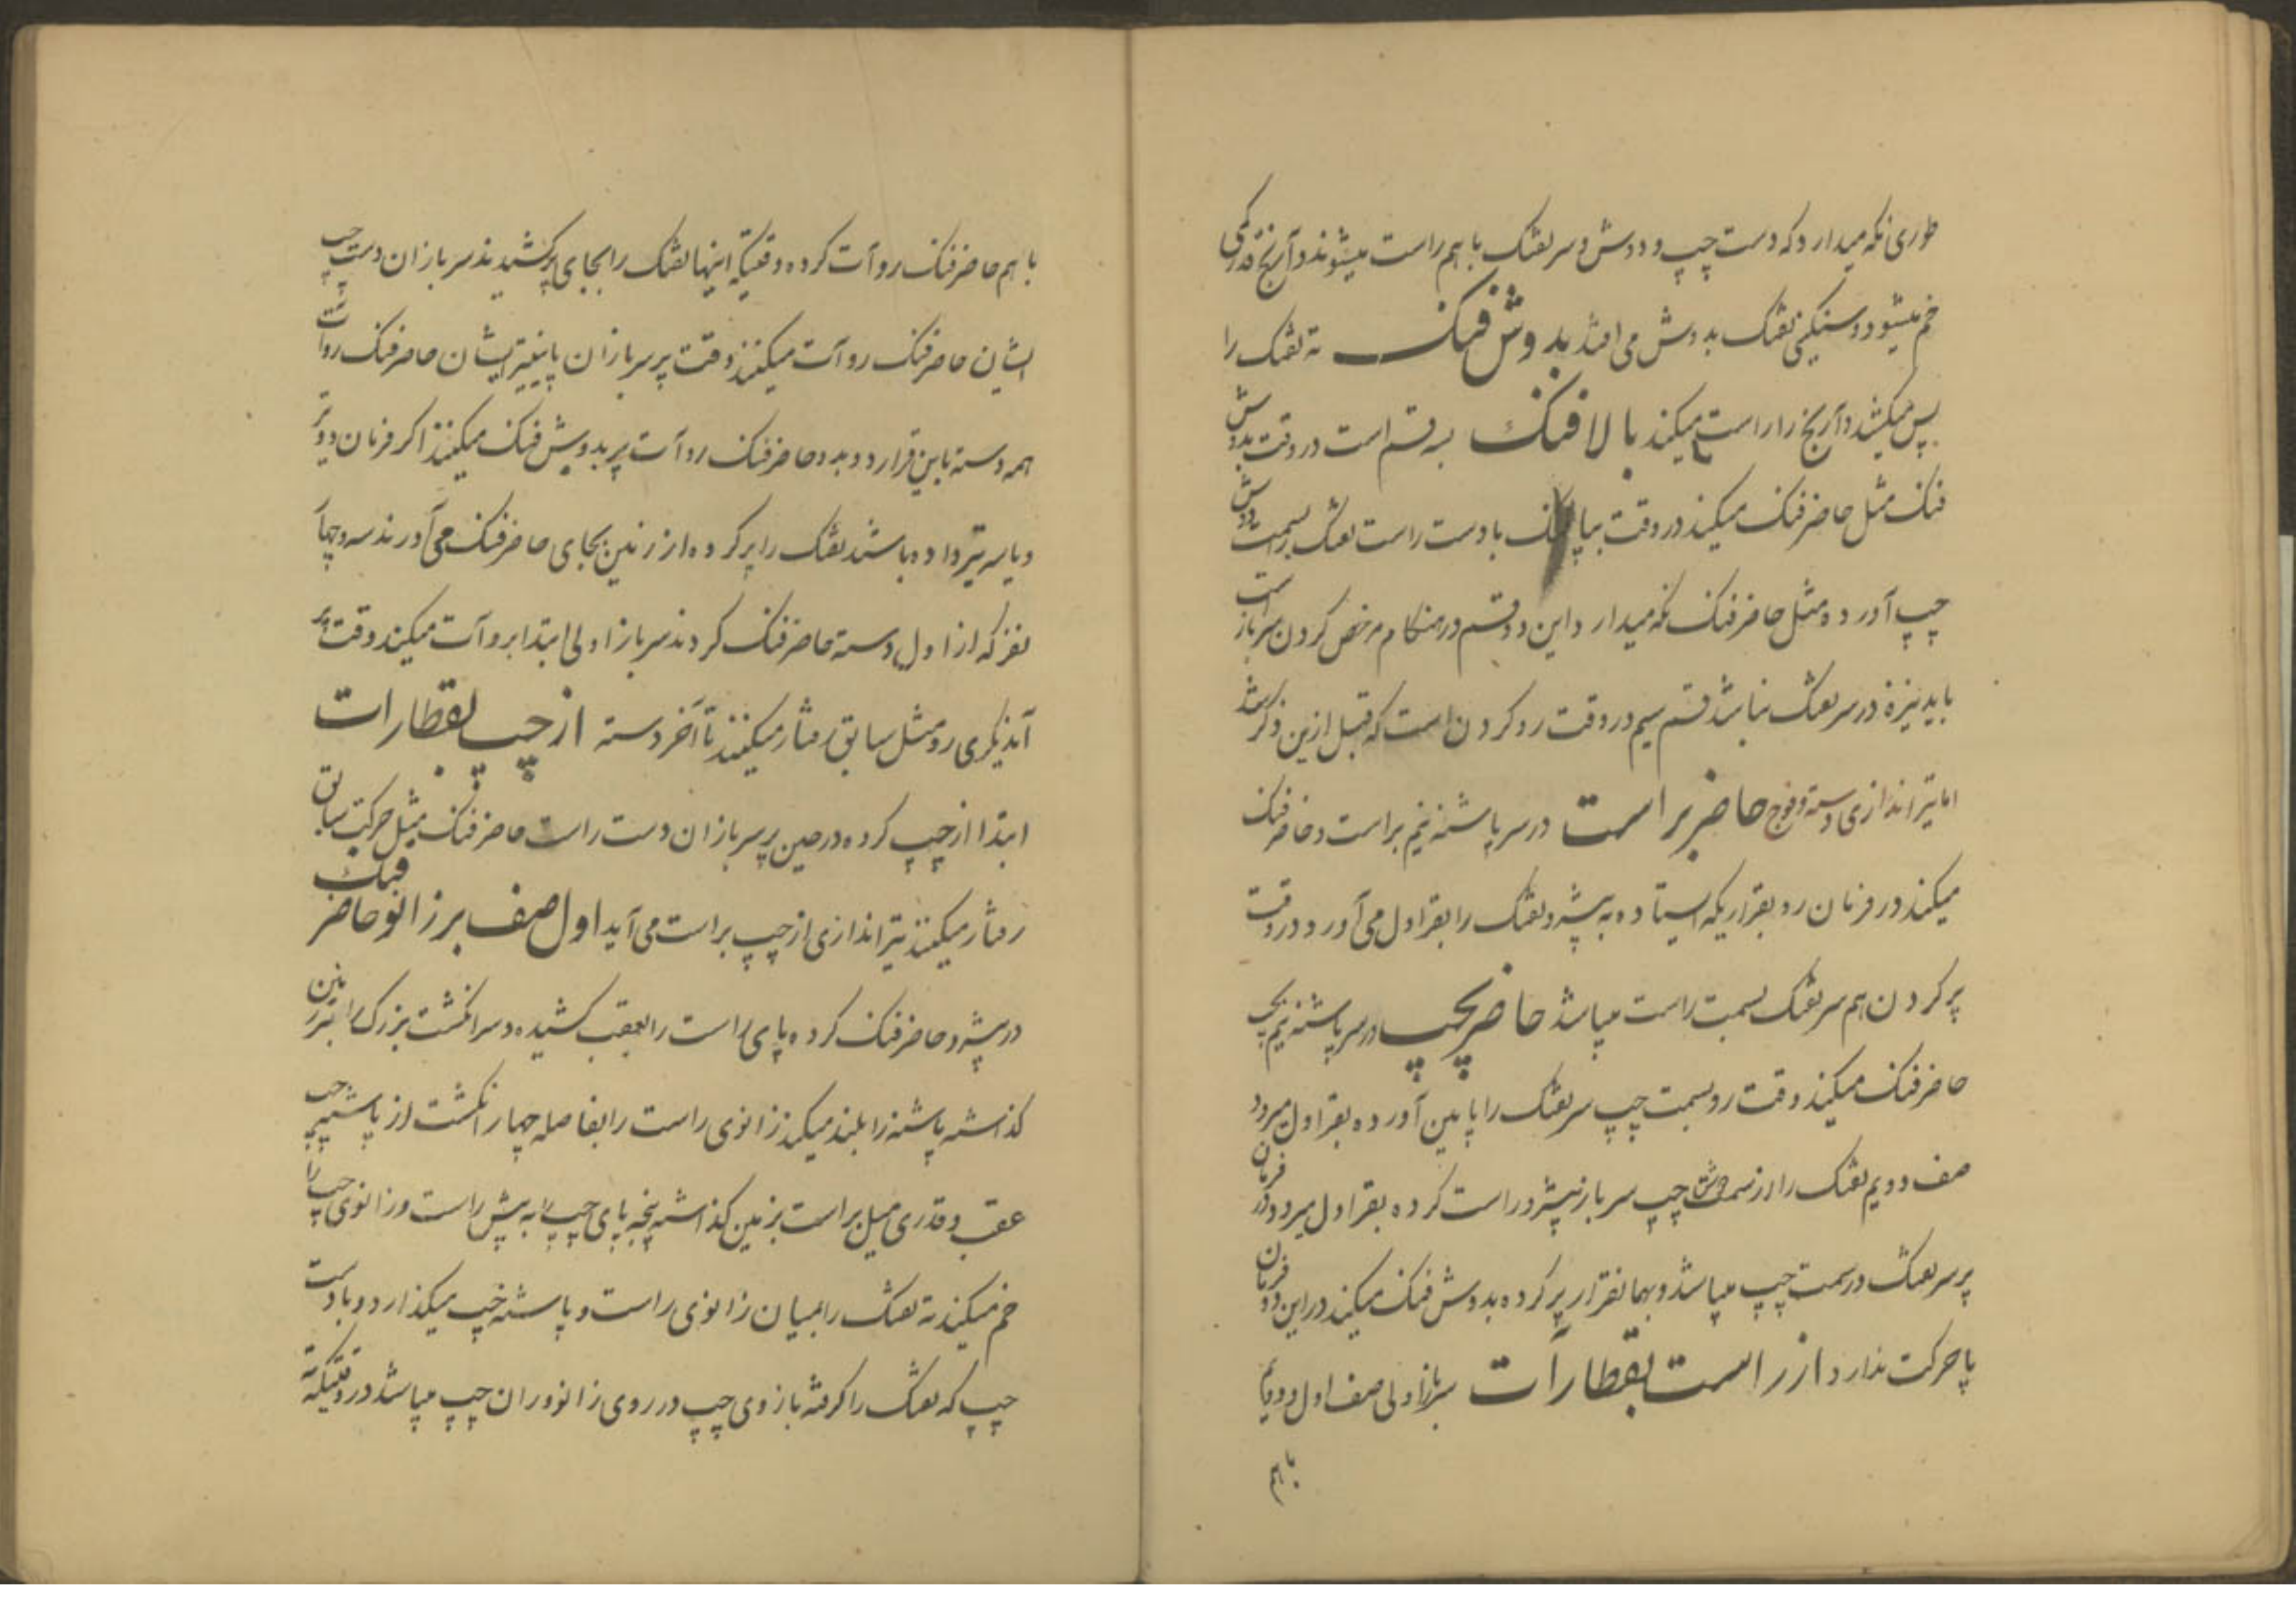 طوری نکه میدارد که دست چپ و دوش و سر تفنک با هم راست میشوند و آرنج قدری
خم میشود و سنکینی تفنک بدوش می افتد بدوش فنک ته تفنک را
پس میکشد و آرنج را راست میکند بالا فنک سه قسم است در وقت بدوش
فنک مثل حاضر فنک میکند در وقت بپا فنک با دست راست تفنک را بسمت دوش
چپ آورده مثل حاضر فنک نکه میدارد و این دو قسم در هنکام مرخص کردن سرباز است
باید نیزه در سر تفنک نباشد قسم سیم در وقت رو کردن است که قبل از این ذکر شد
اما تیر اندازی دسته و فوج حاضر براست در سر پاشنه نیم براست و حاضر فنک
میکند در فرمان رو بقراریکه ایستاده به پیشرو تفنک را بقراول می آورد و در وقت
پر کردن هم سر تفنک بسمت راست میباشد حاضر بچپ در سر پاشنه نیم بچپ
حاضر فنک میکند وقت رو بسمت چپ سر تفنک را پایین آورده بقراول میرود
صف دویم تفنک را از سمت دوش چپ سرباز پیشرو راست کرده بقراول میرود و در فرمان
پر سر تفنک در سمت چپ میباشد و بهمانقرار پر کرده بدوش فنک میکند در این دو فرمان
پا حرکت ندارد از راست بقطار آت سرباز اولی صف اول و دویم
با هم
با هم حاضر فنک رو آت کرده وقتیکه اینها تفنک را بجای پر کشیدند سربازان دست چپ
ایشان حاضر فنک رو آت میکنند وقت پر سربازان پایینتر ایشان حاضر فنک رو آت
همه دسته باین قرار دو بدو حاضر فنک رو آت پر بدوش فنک میکنند اکر فرمان دو تیر
و یا سه تیر داده باشند تفنک را پر کرده از زمین بجای حاضر فنک می آورند سه و چهار
نفر که از اول دسته حاضر فنک کردند سرباز اولی ابتدا برو آت میکند وقت پر
آندیکری رو مثل سابق رفتار میکنند تا آخر دسته از چپ بقطار ات
ابتدا از چپ کرده در حین پر سربازان دست راست حاضر فنک بمثل حرکت سابق
رفتار میکنند تیر اندازی از چپ براست می آید اول صف بر زانو حاضر فنک
در پیشرو حاضر فنک کرده پای راست را بعقب کشیده و سر انکشت بزرک را بر زمین
کذاشته پاشنه را بلند میکند زانوی راست را بفاصله چهار انکشت از پاشنه چپ
عقب و قدری میل براست بزمین کذاشته پنجه پای چپ را به پیش راست و زانوی چپ را
خم میکند ته تفنک را بمیان زانوی راست و پاشنه چپ میکذارد و با دست
چپ که تفنک را کرفته بازوی چپ در روی زانو و ران چپ میباشد در وقتیکه ته